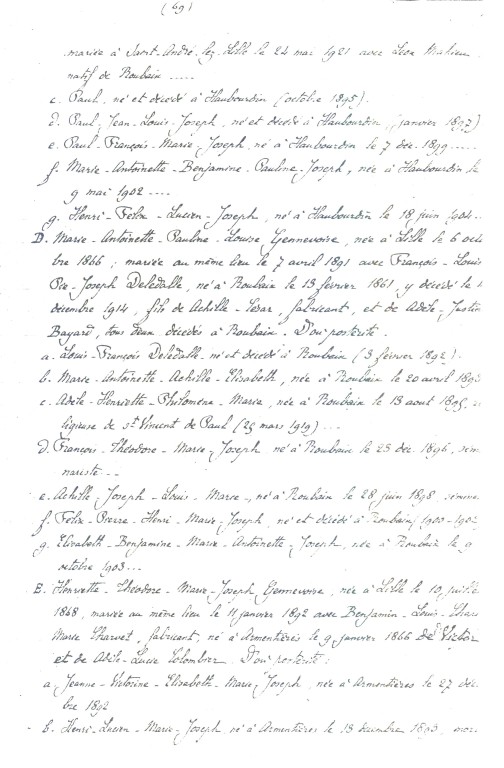 (69)
mariée à Saint-André-lez-Lille le 24 mai 1921 avec Léon Mahieu
natif de Roubaix .....
c. Paul, né et décédé à Haubourdin (octobre 1895).
d. Paul-Jean-Louis-Joseph, né et décédé à Haubourdin, (janvier 1897)
e. Paul-François-Marie-Joseph, né à Haubourdin le 7 déc. 1899 .....
f. Marie-Antoinette-Benjamine-Pauline-Joseph, née à Haubourdin le
9 mai 1902 ....
g. Henri-Félix-Lucien-Joseph, né à Haubourdin le 18 juin 1904 ..
D. Marie-Antoinette-Pauline-Louise Gennevoise, née à Lille le 6 octo
bre 1866 ; mariée au même lieu le 7 avril 1891 avec François-Louis
Pie-Joseph Deledalle, né à Roubaix le 13 février 1861, y décédé le
décembre 1914, fils de Achille-César, fabricant, et de Adèle-Justin
Bayard, tous deux décédés à Roubaix. D'où postérité.
a. Louis-François Deledalle né et décédé à Roubaix (3 février 1892).
b. Marie-Antoinette-Achille-Elisabeth, née à Roubaix le 20 avril 1893
c. Adèle-Henriette-Philomène-Marie, née à Roubaix le 13 aout 1895, re
ligieuse de St Vincent de Paul (25 mars 1919) ...
d. François-Théodore-Marie-Joseph né à Roubaix le 23 déc. 1896, sémi
nariste ...
e. Achille-Joseph-Louis-Marie, né à Roubaix le 28 juin 1898, sémina
f. Félix-Pierre-Henri-Marie-Joseph, né et décédé à Roubaix (1900-1902
g. Elisabeth-Benjamine-Marie-Antoinette-Joseph, née à Roubaix le 9
octobre 1903 ...
E. Henriette-Théodore-Marie-Joseph Gennevoise, née à Lille le 10 juille
1868, mariée au même lieu le 11 janvier 1892 avec Benjamin-Louis-
Marie Charvet, fabricant, né à Armentières le 9 janvier 1866 de Victor
et de Adèle-Lucie Colombier. D'où postérité :
a. Jeanne-Victorine-Elisabeth-Marie-Joseph, née à Armentières le 27 déce
bre 1892
b. Henri-Lucien-Marie-Joseph, né à Armentières le 13 décembre 1893, mort